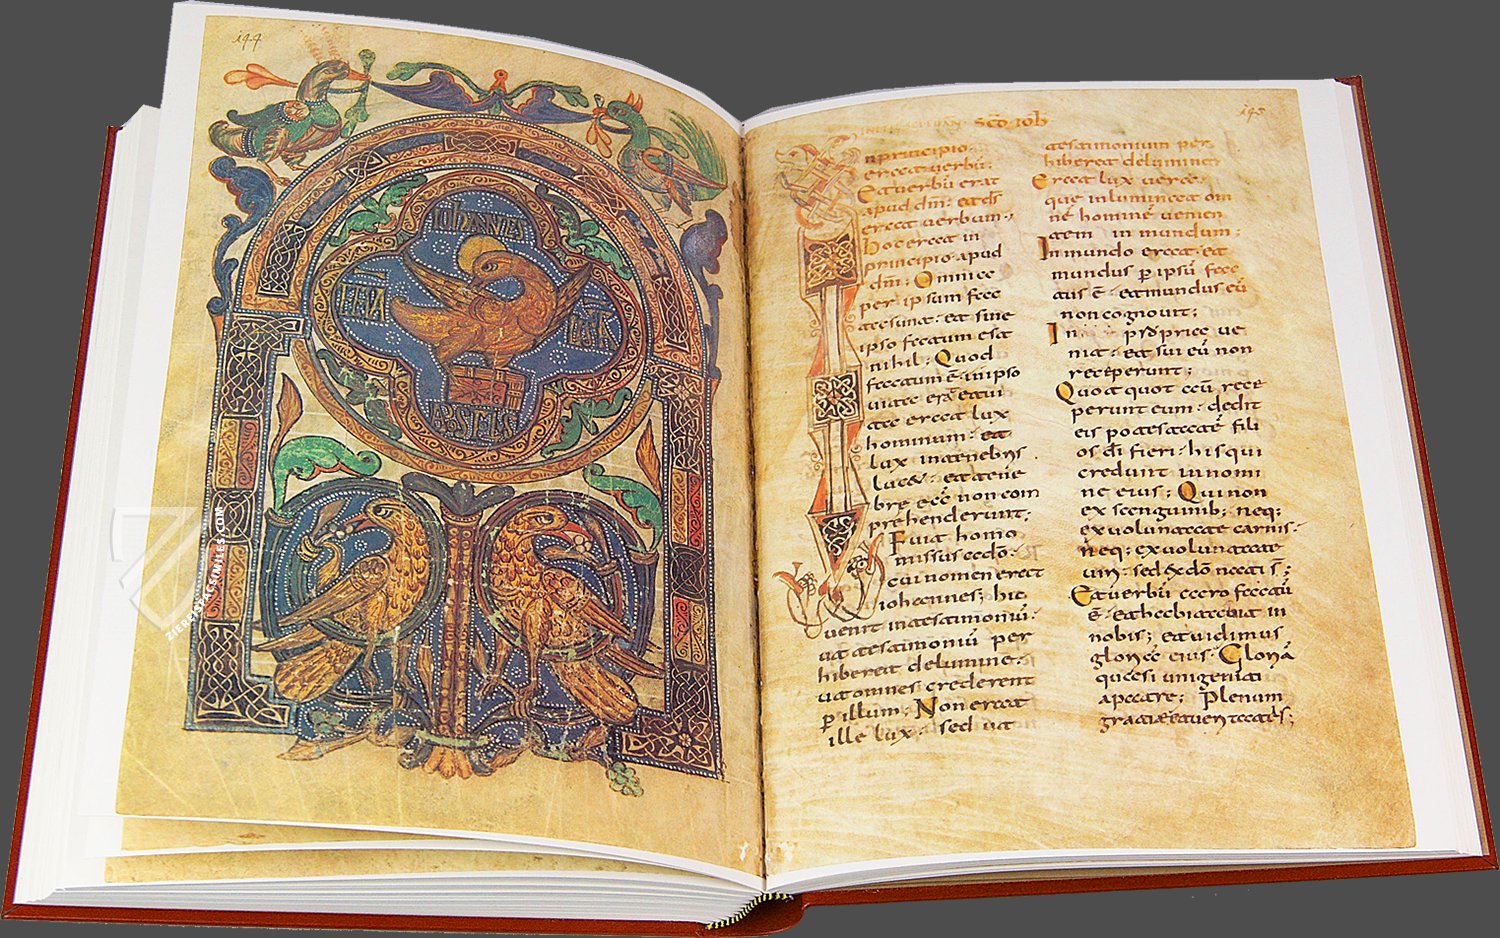 144
IOHANNES
ZIEREIS FACSIMILES.COM
145
INITIUM sc̄o ioħ
In principio
erat verbū.
Et verbū erat
apud dm̄: et ds̄
erat verbum;
hoc erat in
principio apud
dm̄: Omnia
per ipsum facta
sunt: et sine
ipso factum est
nihil: Quod
factum ē in ipso
vita erat et vi
ta erat lux
hominum: et
lux in tenebris
lucet: et tene
bre eā non com
prehenderunt:
Fuit homo
missus a dō:
cui nomen erat
iohannes; hic
venit in testimoniū:
ut testimoniū per
hiberet de lumine:
ut omnes crederent
p illum; Non erat
ille lux: sed ut
testimonium per
hiberet de lumine
Erat lux vera
que inluminat om
nē hominē venien
tem in mundum:
In mundo erat et
mundus p ipsū fac
tus ē: et mundus eū
non cognovit;
In propria ve
nit: et sui eū non
receperunt;
Quotquot aū rece
perunt eum: dedit
eis potestatē fili
os dī fieri: his qui
credunt in nomi
ne eius; Qui non
ex sanguinib; neq;
ex voluntate carnis:
neq; ex voluntate
viri: sed ex dō nati s̄;
Et verbū caro factū
ē: et habitavit in
nobis; et vidimus
gloriā eius: Gloriā
quasi unigeniti
a patre; Plenum
gratiae et veritatis;